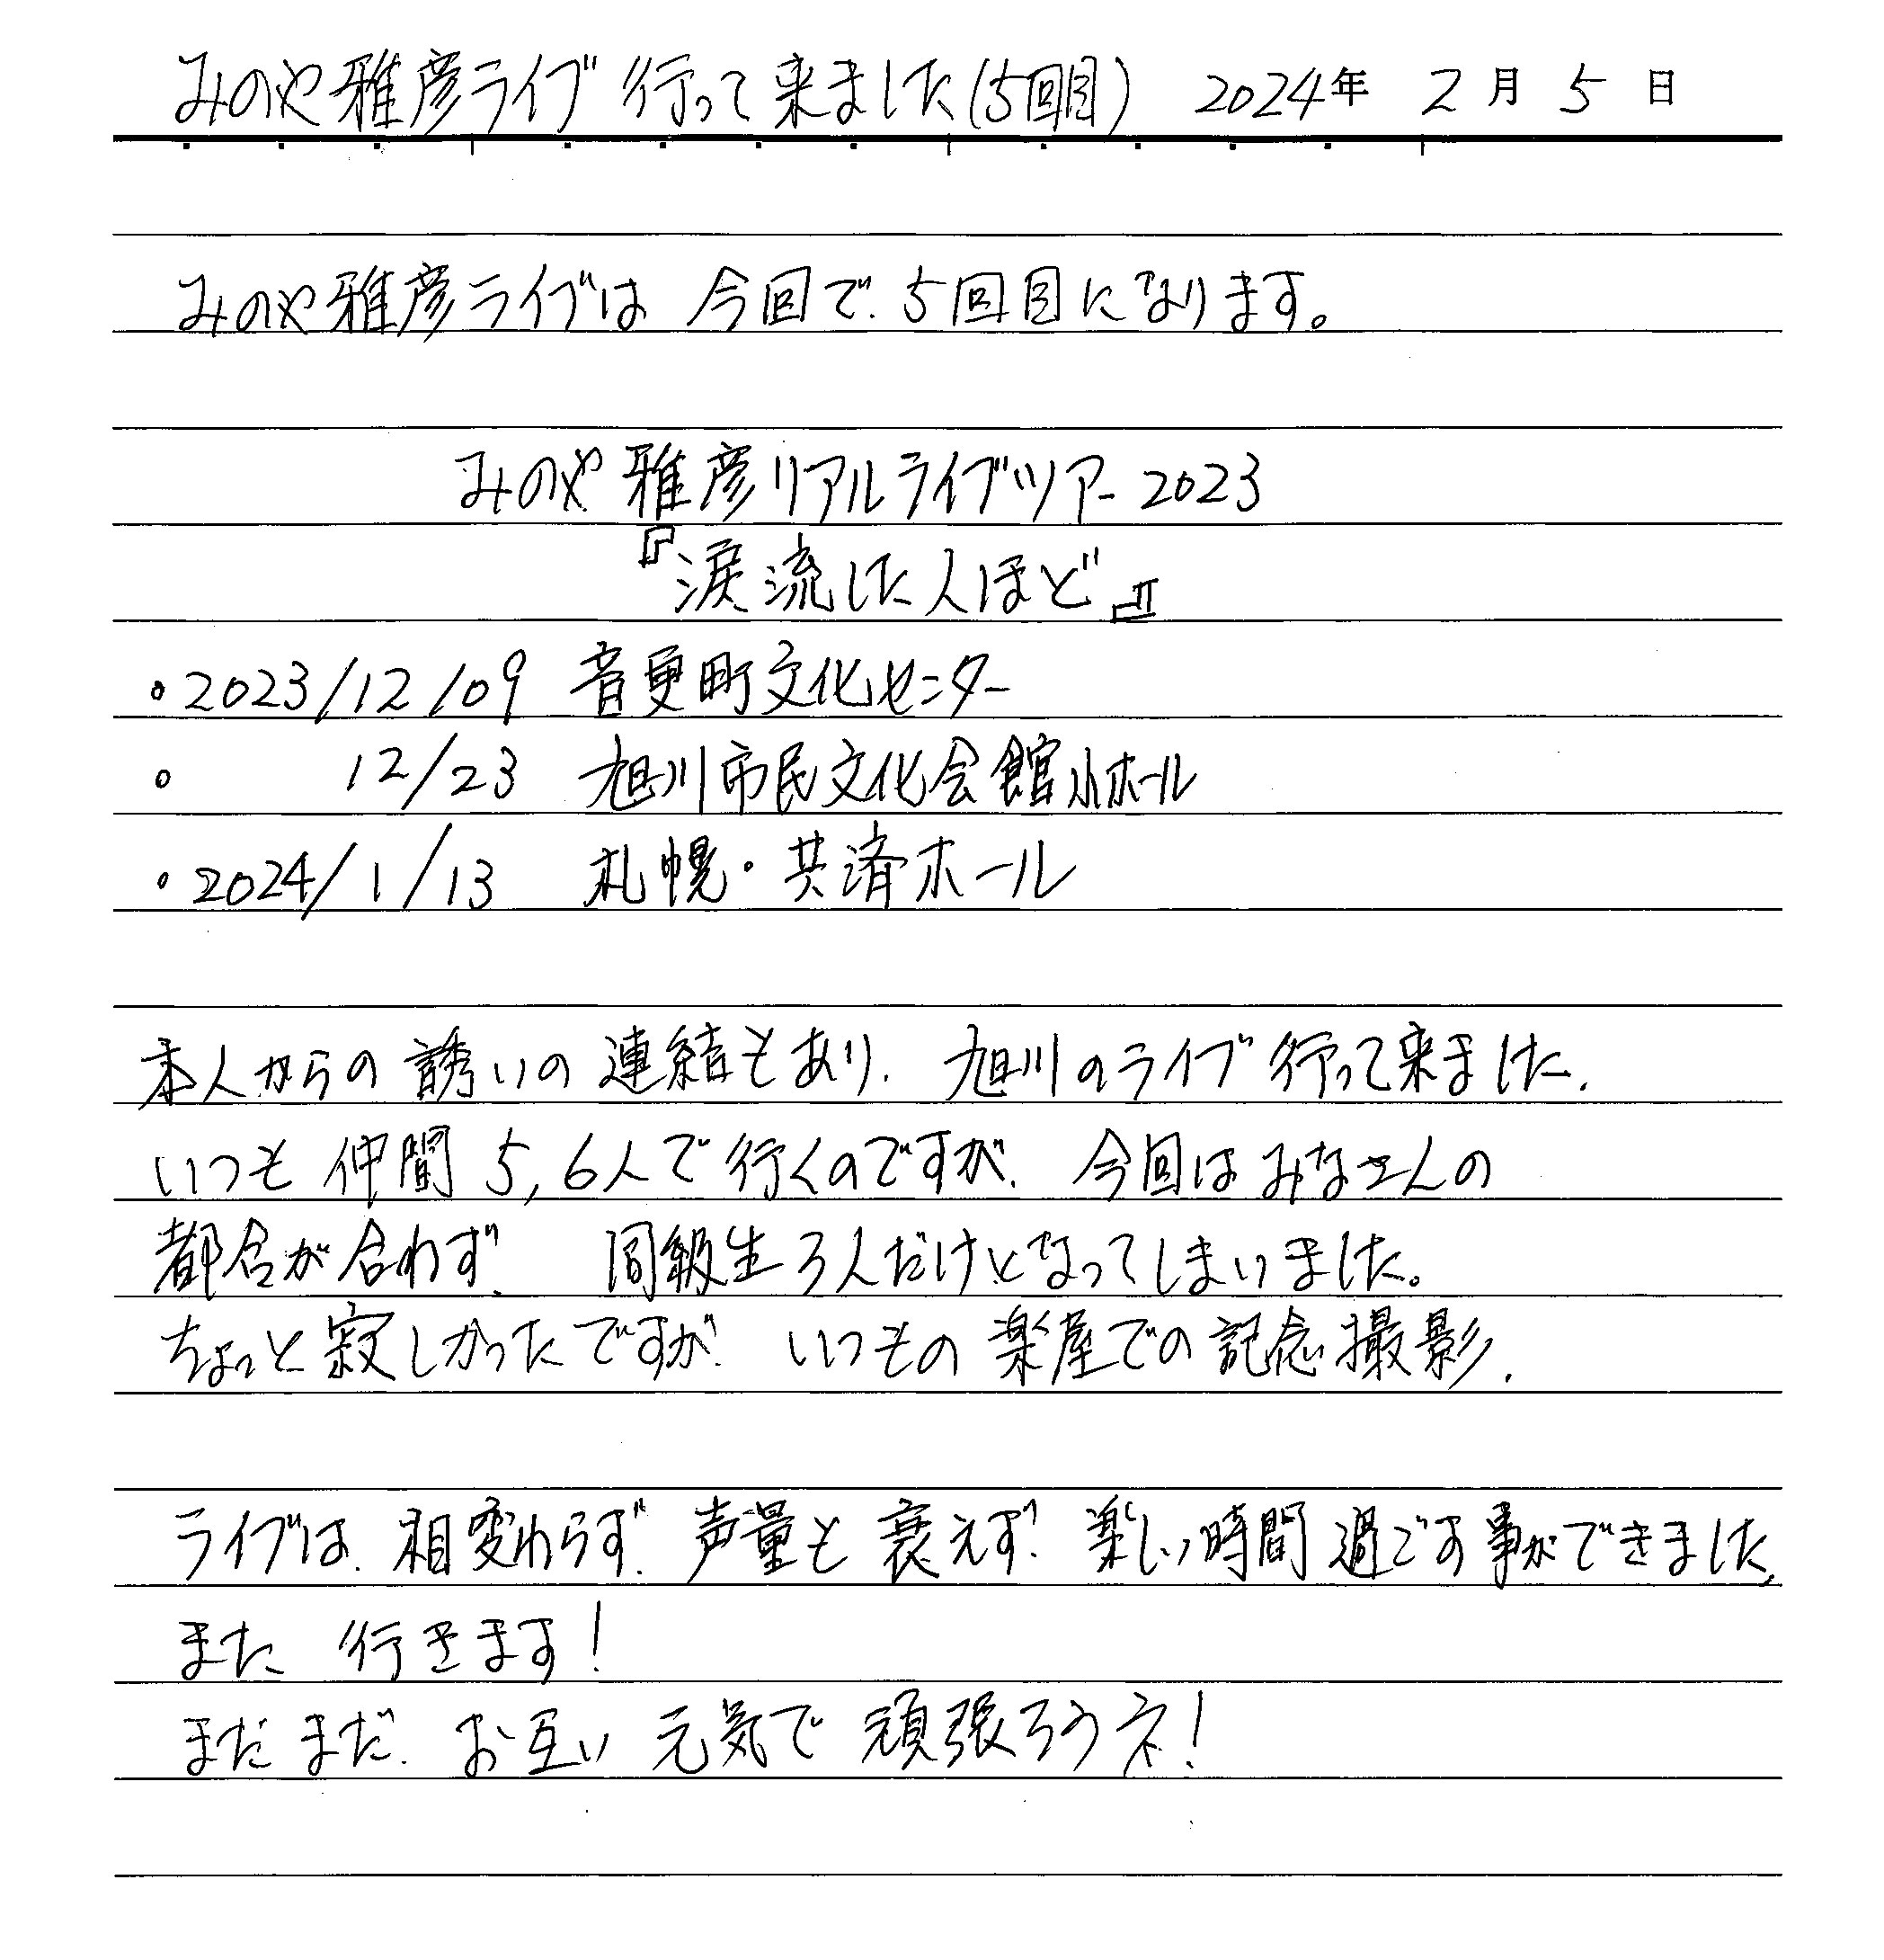 みのや雅彦ライブ行って来ました(5回目) 2024年 2月 5日
みのや雅彦ライブは 今回で、5回目になります。
みのや雅彦リアルライブツアー2023
『涙流した人ほど』
・2023/12/09 音更町文化センター
・ 12/23 旭川市民文化会館小ホール
・2024/1/13 札幌・共済ホール
本人からの誘いの連絡もあり、旭川のライブ行って来ました。
いつも仲間5,6人で行くのですが、今回はみなさんの
都合が合わず、同級生3人だけとなってしまいました。
ちょっと寂しかったですが、いつもの楽屋での記念撮影。
ライブは、相変わらず、声量も衰えず、楽しい時間過ごす事ができました。
また 行きます!
まだまだ、お互い元気で頑張ろうネ!